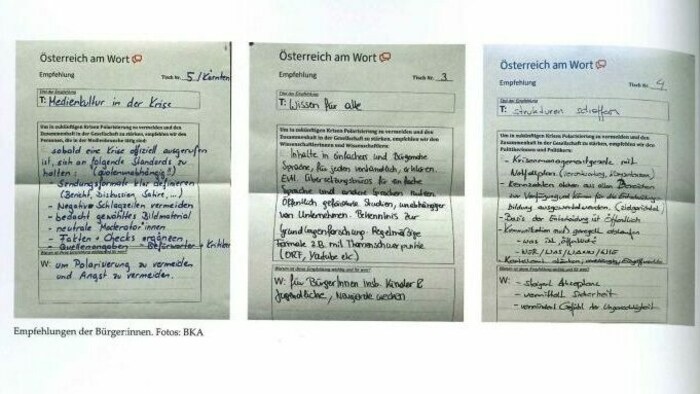 Österreich am Wort
Empfehlung Tisch Nr. 5/Kärnten
Titel der Empfehlung
T: Medienkultur in der Krise
Um in zukünftigen Krisen Polarisierung zu vermeiden und den
Zusammenhalt in der Gesellschaft zu stärken, empfehlen wir den
Personen, die in der Medienbranche tätig sind:
sobald eine Krise offiziell ausgerufen
ist, sich an folgende Standards zu
halten:
- Sendungsformate klar definieren
(Bericht, Diskussion, Satire, ...)
- Negative Schlagzeilen vermeiden
- bedacht gewähltes Bildmaterial
- neutrale Moderator*innen
- Fakten-Checks ergänzen
- Quellenangaben - Befürworter + Kritiker
Warum ist diese Empfehlung wichtig und für wen?
W: um Polarisierung zu vermeiden
und Angst zu vermeiden.
Österreich am Wort
Empfehlung Tisch Nr. 3
Titel der Empfehlung
T: Wissen für alle
Um in zukünftigen Krisen Polarisierung zu vermeiden und den
Zusammenhalt in der Gesellschaft zu stärken, empfehlen wir den
Wissenschaftlerinnen und Wissenschaftlern:
Inhalte in einfacher und Bürgernahe
Sprache, für jeden verständlich, erklären.
Evtl. Übersetzungsbüros für einfache
Sprache und andere Sprachen nutzen
Öffentlich geförderte Studien, unabhängig
von Unternehmen. Bekenntnis zur
Grundlagenforschung. Regelmäßige
Formate z.B. mit Themenschwerpunkte
(ORF, Youtube etc)
Warum ist diese Empfehlung wichtig und für wen?
W: für BürgerInnen insb. Kinder &
Jugendliche, Neugierde wecken
Österreich am Wort
Empfehlung Tisch Nr. 4
Titel der Empfehlung
T: Strukturen schaffen
Um in zukünftigen Krisen Polarisierung zu vermeiden und den
Zusammenhalt in der Gesellschaft zu stärken, empfehlen wir den
Politikerinnen und Politikern:
- Krisenmanagement mit
Notfallplan
- Kennzahlen aus allen Bereichen
zur Verfügung für die Entscheidungs-
bildung
- Basis der Entscheidung ist Öffentlich
- Kommunikation muss geregelt ablaufen
- was ist öffentlich
- WER/WAS/WANN/WIE
Warum ist diese Empfehlung wichtig und für wen?
W: - steigert Akzeptanz
- vermittelt Sicherheit
- vermindert Gefühl der Ungerechtigkeit
Empfehlungen der Bürger:innen. Fotos: BKA